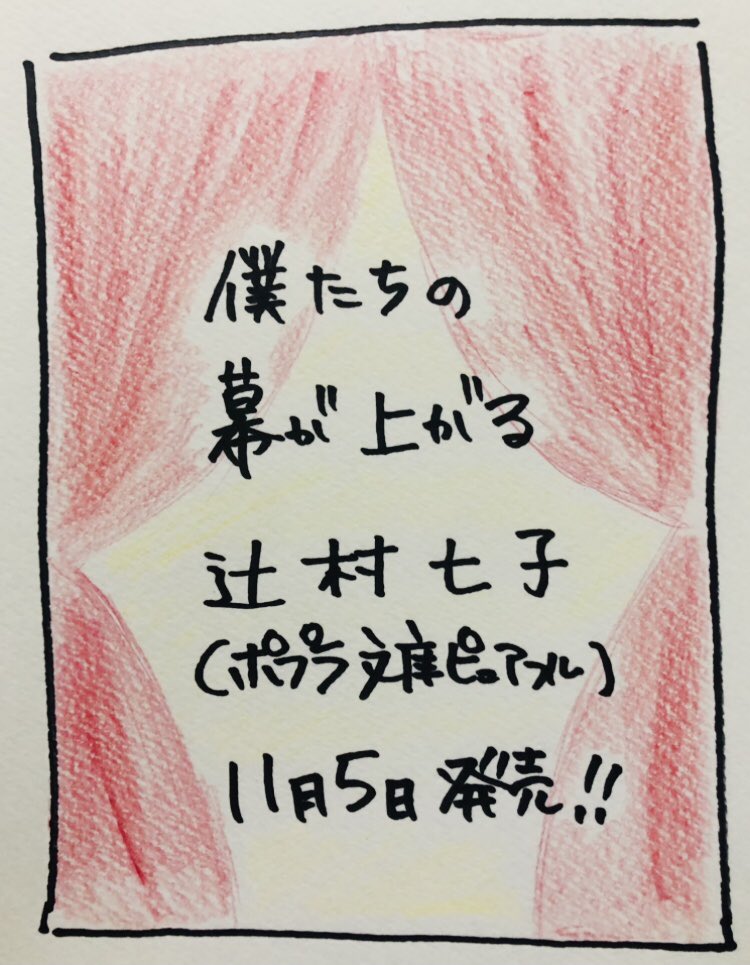 僕たちの
幕が上がる
辻村七子
(ポプラ文庫ピュアフル)
11月5日発売!!